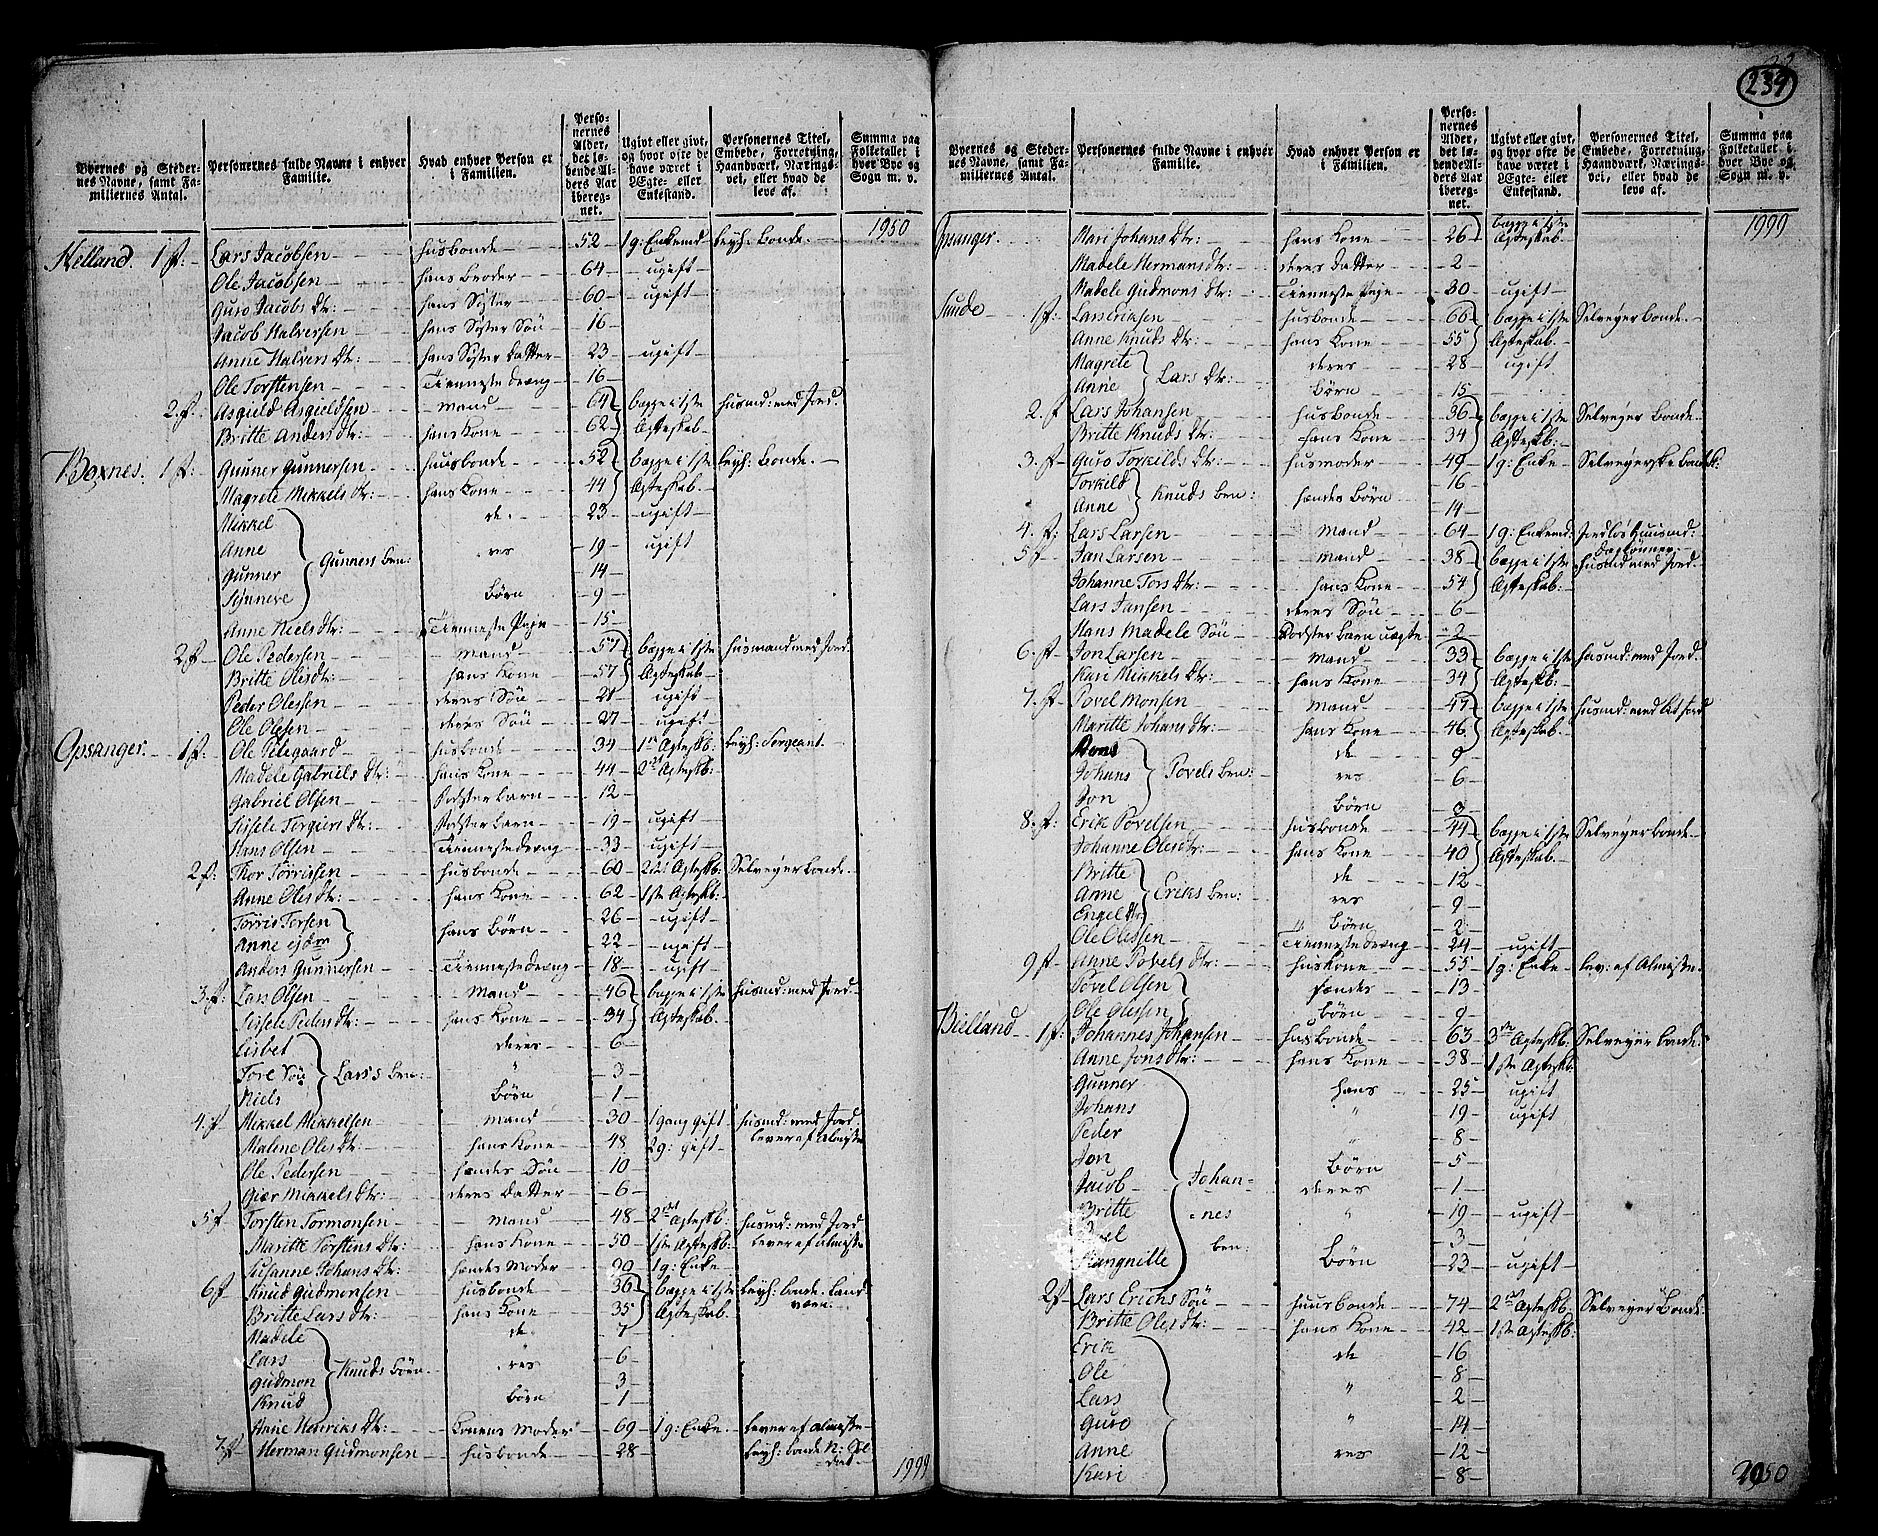 239
Byernes og Stedernes Navne, samt Familiernes Antal.
Personernes fulde Navne i enhver Familie.
Hvad enhver Person er i Familien.
Personernes Alder, det løbende Alders Aar iberegnet.
Ugivt eller givt, og hvor ofte de have været i Ægte- eller Enkestand.
Personernes Titel, Embede, Forretning, Haandværk, Næringsvei, eller hvad de leve af.
Summa paa Folketallet i hver Bye og Sogn m. v.
1950
Helland. 1 f: Lars Jacobsen husbonde 52 1g: Enkemd leyl: Bonde.
Ole Jacobsen hans broder 64 ugift
Guro Jacobs Dtr: hans Syster 60 ugift
Jacob Halversen hans Syster Søn 16
Anne Halvers Dtr: hans Syster Datter 23 ugift
Ole Torstensen Tienneste dreng 16
2. f: Asguld Asguldsen mand 64 begge i 1ste husmd: med Jord.
Britte Anders dtr: hans Kone 62 Ægteskab.
Boxnes. 1 f: Gunner Gunnersen husbonde 52 begge i 1ste leyl: Bonde.
Magrete Mikkels dtr: hans Kone 44 Ægteskab.
Mikkel de- 23 ugift
Anne Gunners Bøn: res 19 ugift
Gunner 14
Synneve Børn 9
Anne Niels dtr: Tienneste Pige 15
2. f Ole Pedersen mand 57 begge i 1ste husmand med Jord
Britte Olesdtr: hans Kone 57 Ægteskab
Peder Olessen deres Søn 21 ugift
Ole Olesen deres Søn 27 ugift
Opsanger. 1 f: Ole Pilegaard husbonde 34 1ste Ægteskb: leyl: Sergeant.
Madele Gabriels Dtr: hans Kone 44 2det Ægteskb:
Gabriel Olsen Fodster barn 12
Sissele Torgiers dtr: Fodster barn 19 ugift
Hans Olsen Tienneste dreng 33 ugift
2 f: Thor Tørrissen husbonde 60 2det Ægteskb: Selveyer bonde.
Anne Oles dtr: hans Kone 62 1ste Ægteskb:
Tørris Torsen hans Børn 26 ugift
Anne 22 ugift
Anders Gunnersen Tienneste dreng 18 ugift
3. f: Lars Olsen Mand 46 begge i 1ste husmd: med Jord
Sissele Peders dtr: hans Kone 34 Ægteskab.
Lisbet deres 6
Tore Søn Lars's Bøn: " 3
Niels Børn 1
4. f Mikkel Mikkelsen mand 30 1 gang gift husmd: med Jord.
Malene Oles dtr: hans Kone 48 2g: gift lever af almisse
Ole Pedersen hendes Søn 10
Giær Mikkels Dtr: deres Datter 6
5 f Torsten Tormonsen mand 48 2det Ægteskb: husmd: med Jord
Maritte Torstens Dtr: hans Kone 50 1ste Ægteskb: lever af almisse
Susanne Johans Dtr: hendes Moder 1g: Enke
6 f Knud Gudmonsen husbonde 36 begge i 1ste leyl: bonde. Land
Britte Lars dtr: hans Kone 35 Ægteskab. værn
Madele de- 7
Lars Knuds Børn res 6
Gudmon 3
Knud Børn 1
Anne Henriks Dtr: Konens Moder 69 1g: Enke lever af almisse
7. f Herman Gudmonsen husbonde 28 leyl: bonde N: Sol
dat
1999
Byernes og Stedernes Navne, samt Familiernes Antal.
Personernes fulde Navne i enhver Familie.
Hvad enhver Person er i Familien.
Personernes Alder, det løbende Alders Aar iberegnet.
Ugivt eller givt, og hvor ofte de have været i Ægte- eller Enkestand.
Personernes Titel, Embede, Forretning, Haandværk, Næringsvei, eller hvad de leve af.
Summa paa Folketallet i hver Bye og Sogn m. v.
1999
Mari Johans Dtr: hans Kone 26 begge i 1ste Ægteskab.
Madele Hermans dtr: deres Datter 2
Madele Gudmons Dtr: Tienneste Pige 30 ugift
Sunde 1 f: Lars Eriksen husbonde 66 begge i 1ste Selveyer bonde.
Anne Knuds Dtr: hans Kone 55 Ægteskab.
Magrete Lars Dtr: deres 28 ugift
Anne Børn 15
2. f Lars Johansen husbonde 36 begge i 1ste Selveyer bonde.
Britte Knuds Dtr: hans Kone 34 Ægteskb:
3. f Guro Torkilds Dtr: husmoder 49 1g: Enke Selveyerske
Torkild Knuds Bøn: hendes Børn 16
Anne 14
4. f: Lars Larsen mand 64 1g: Enkemd: Jordløs Huusmd:
5 f Jan Larsen mand 38 begge i 1ste husmd med Jord.
Johanne Tors Dtr: hans Kone 54 Ægteskab.
Lars Jansen deres Søn 6
Hans Madele Søn Fodster barn uægte 2
6. f Jon Larsen mand 33 begge i 1ste husmd: med Jord.
Kari Mikkels Dtr: hans Kone 34 Ægteskb:
7. f Povel Monsen mand 47 begge i 1ste husmd: med lit Jord
Maritte Johans dtr: hans Kone 46 Ægteskab.
Mons de 9
Johans Povels Bøn: res 6
Jon Børn 3
8. f: Erik Povelsen husbonde 44 begge i 1ste Selveyer bonde.
Johanne Oles dtr: hans Kone 40 Ægteskab.
Britte de 12
Anne Eriks Bøn: res 9
Engel Dtr " Børn 2
Ole Olessen Tienneste dreng 24 ugift
9 f Anne Povels Dtr: huskone 55 1g: Enke lev: af Almisse.
Povel Olsen hendes 13
Ole Olessen Børn 9
Bielland 1 f: Johannes Johansen husbonde 63 3de Ægteskb. Selveyer bonde.
Anne Jons dtr: hans Kone 38 1ste Ægteskb:
Gunner hans 25 ugift
Johans " 19 ugift
Peder " 8
Jon Børn 5
Jacob Johan- deres 1
Britte nes " 19 ugift
bøn: 3
Rangnille Børn 23 ugift
2 f Lars Erichs Søn huusbonde 74 2det Ægteskb. Selveyer Bonde.
Britte Oles dtr: hans Kone 42 1ste Ægteskb:
Erik de 16
Ole 8
Lars " 2
Guro " 14
Anne res 12
Kari 8
2050